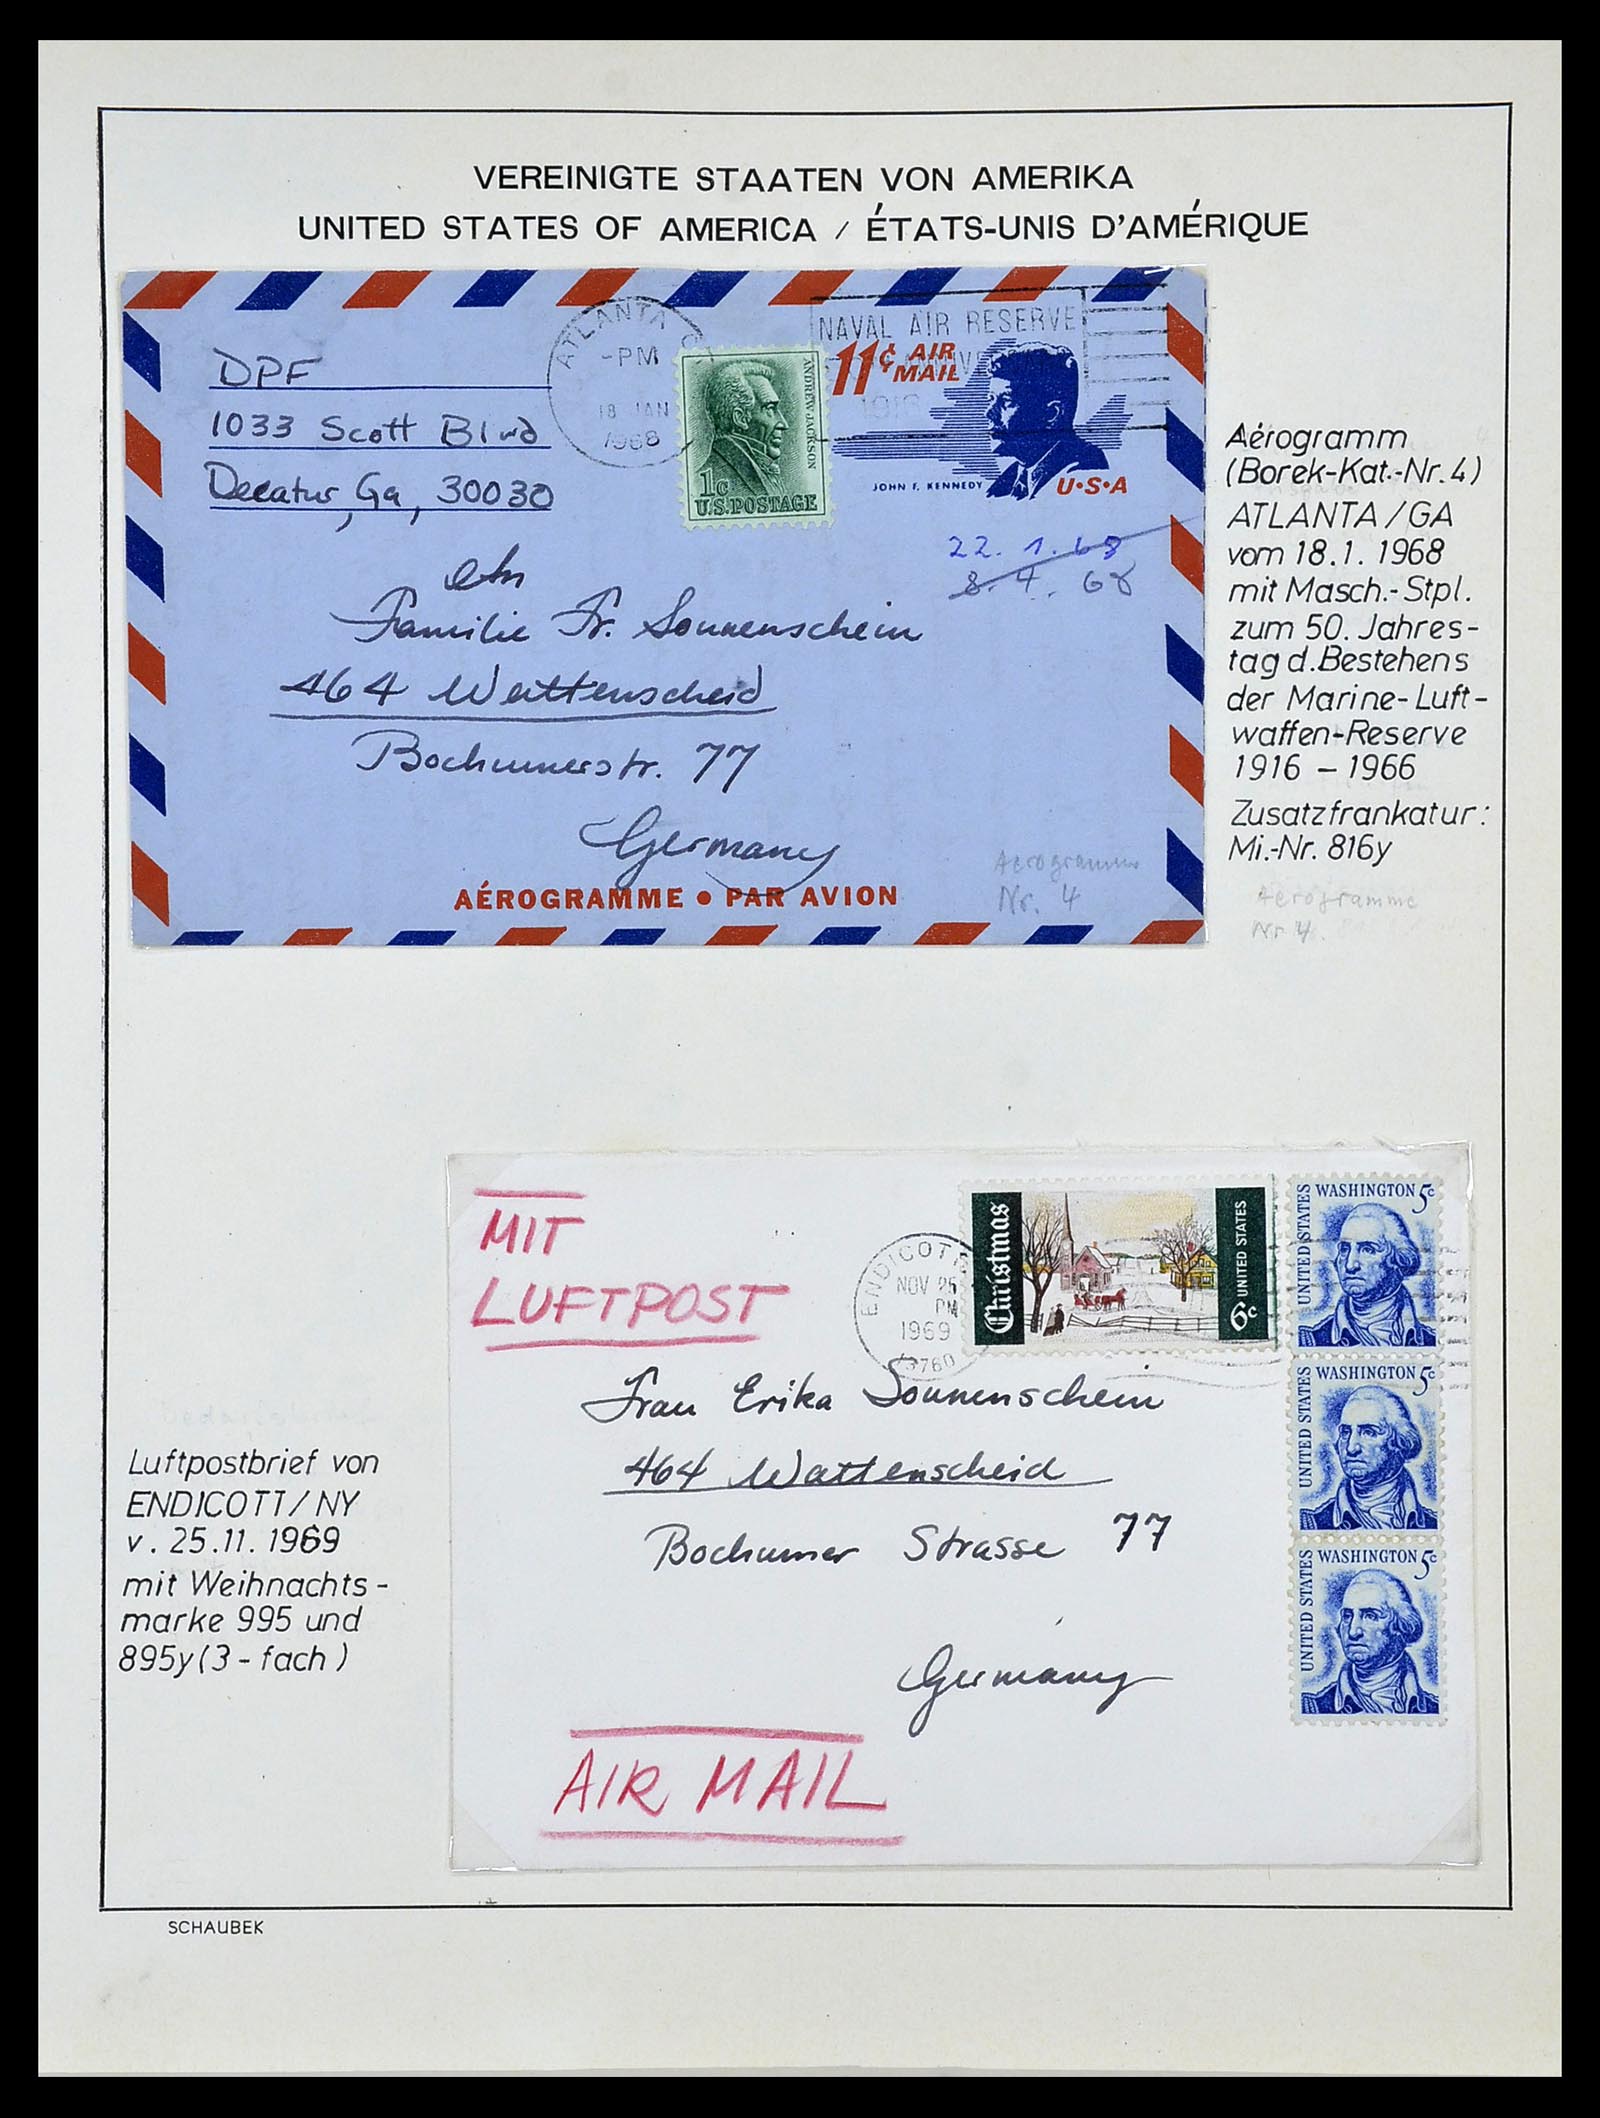 VEREINIGTE STAATEN VON AMERIKA
UNITED STATES OF AMERICA / ÉTATS-UNIS D'AMÉRIQUE
DPF
1033 Scott Blvd
Decatur, Ga, 30030
ATLANTA
-PM
18 JAN
1968
NAVAL AIR RESERVE
1916
ANDREW JACKSON
1c
U.S. POSTAGE
11¢ AIR
MAIL
JOHN F. KENNEDY
U·S·A
22. 1. 68
8. 4. 68
Familie Fr. Sonnenschein
464 Wattenscheid
Bochumerstr. 77
Germany
AÉROGRAMME • PAR AVION
Aerogramme
Nr. 4
Aérogramm
(Borek-Kat.-Nr. 4)
ATLANTA/GA
vom 18.1. 1968
mit Masch.-Stpl.
zum 50. Jahres-
tag d. Bestehens
der Marine-Luft-
waffen-Reserve
1916 – 1966
Zusatzfrankatur:
Mi.-Nr. 816y
Aerogramme
Nr 4.
MIT
LUFTPOST
ENDICOTT
NOV 25
PM
1969
13760
Christmas
6c UNITED STATES
WASHINGTON 5c
UNITED STATES
WASHINGTON 5c
UNITED STATES
WASHINGTON 5c
UNITED STATES
Frau Erika Sonnenschein
464 Wattenscheid
Bochumer Strasse 77
Germany
AIR MAIL
Luftpostbrief von
ENDICOTT/NY
v. 25.11. 1969
mit Weihnachts-
marke 995 und
895y (3-fach)
SCHAUBEK